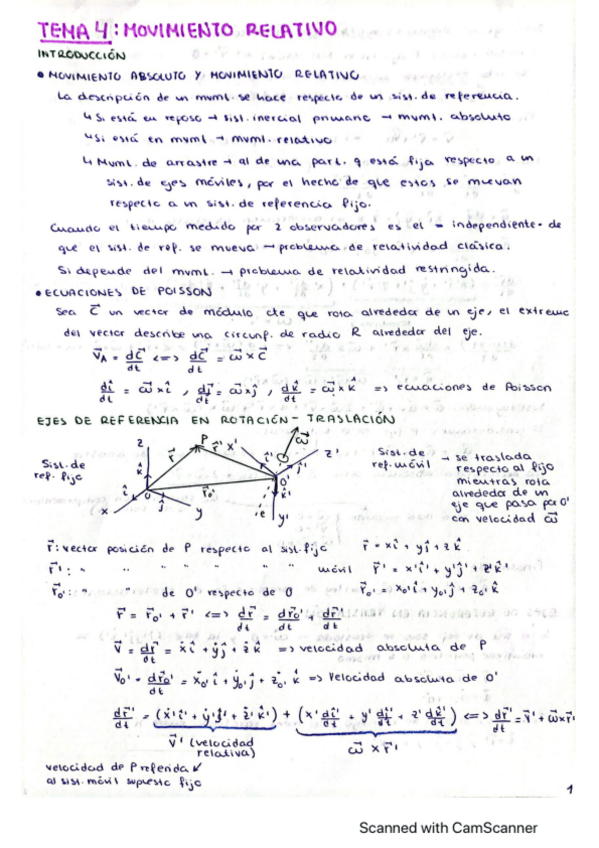 TEMA 4: MOVIMIENTO RELATIVO
INTRODUCCIÓN
• MOVIMIENTO ABSOLUTO Y MOVIMIENTO RELATIVO
La descripción de un mvmt. se hace respecto de un sist. de referencia.
↳ Si está en reposo → sist. inercial primario → mvmt. absoluto
↳ Si está en mvmt → mvmt. relativo
↳ Mvmt. de arrastre → al de una part. q está fija respecto a un
sist. de ejes móviles, por el hecho de que estos se muevan
respecto a un sist. de referencia fijo.
Cuando el tiempo medido por 2 observadores es el = independiente de
que el sist. de ref. se mueva → problema de relatividad clásica.
Si depende del mvmt. → problema de relatividad restringida.
• ECUACIONES DE POISSON
Sea C⃗ un vector de módulo cte que rota alrededor de un eje, el extremo
del vector describe una circunf. de radio R alrededor del eje.
V⃗A = dC⃗/dt <=> dC⃗/dt = ω⃗ × C⃗
dî/dt = ω⃗ × î , dĵ/dt = ω⃗ × ĵ , dk̂/dt = ω⃗ × k̂ => ecuaciones de Poisson
EJES DE REFERENCIA EN ROTACIÓN - TRASLACIÓN
Sist. de
ref. fijo
z P r⃗ r⃗' x' ω⃗ z' k̂ î ĵ O x y r⃗o' î' ĵ' O' k̂' e y'
Sist. de
ref. móvil → se traslada
respecto al fijo
mientras rota
alrededor de un
eje que pasa por O'
con velocidad ω⃗
r⃗: vector posición de P respecto al sist. fijo r⃗ = xî + yĵ + zk̂
r⃗': " " " " " " móvil r⃗' = x'î' + y'ĵ' + z'k̂'
r⃗o': " " de O' respecto de O r⃗o' = xo'î + yo'ĵ + zo'k̂
r⃗ = r⃗o' + r⃗' <=> dr⃗/dt = dr⃗o'/dt + dr⃗'/dt
V⃗ = dr⃗/dt = ẋî + ẏĵ + żk̂ => velocidad absoluta de P
V⃗o' = dr⃗o'/dt = ẋo'î + ẏo'ĵ + żo'k̂ => Velocidad absoluta de O'
dr⃗'/dt = (ẋ'î' + ẏ'ĵ' + ż'k̂') + (x'dî'/dt + y'dĵ'/dt + z'dk̂'/dt) <=> dr⃗'/dt = V⃗' + ω⃗×r⃗'
V⃗' (velocidad
relativa)
ω⃗ × r⃗'
velocidad de P referida
al sist. móvil supuesto fijo
1
Scanned with CamScanner